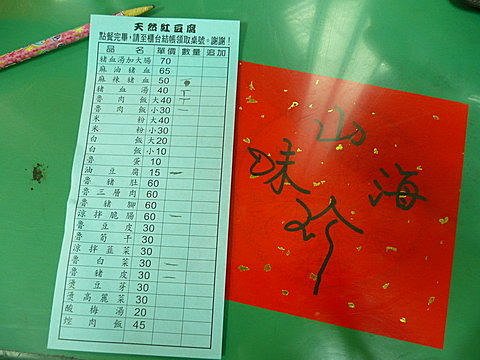 天然紅豆腐
點餐完畢，請至櫃台結帳領取桌號。謝謝！
品名 單價 數量 追加
豬血湯加大腸 70
麻油豬血 65
麻辣豬血 50
豬血湯 40
魯肉飯 大40
魯肉飯 小30
米粉 大40
米粉 小30
白飯 大20
白飯 小10
魯蛋 10
油豆腐 15 一
魯豬肚 60
魯三層肉 60
魯豬腳 60
涼拌脆腸 60 一
魯豆皮 30
魯筍干 30
涼拌韮菜 30
魯白菜 30 一
魯豬皮 30 一
燙豆芽 30
燙高麗菜 30
酸梅湯 20
焢肉飯 45
山
海
珍
味